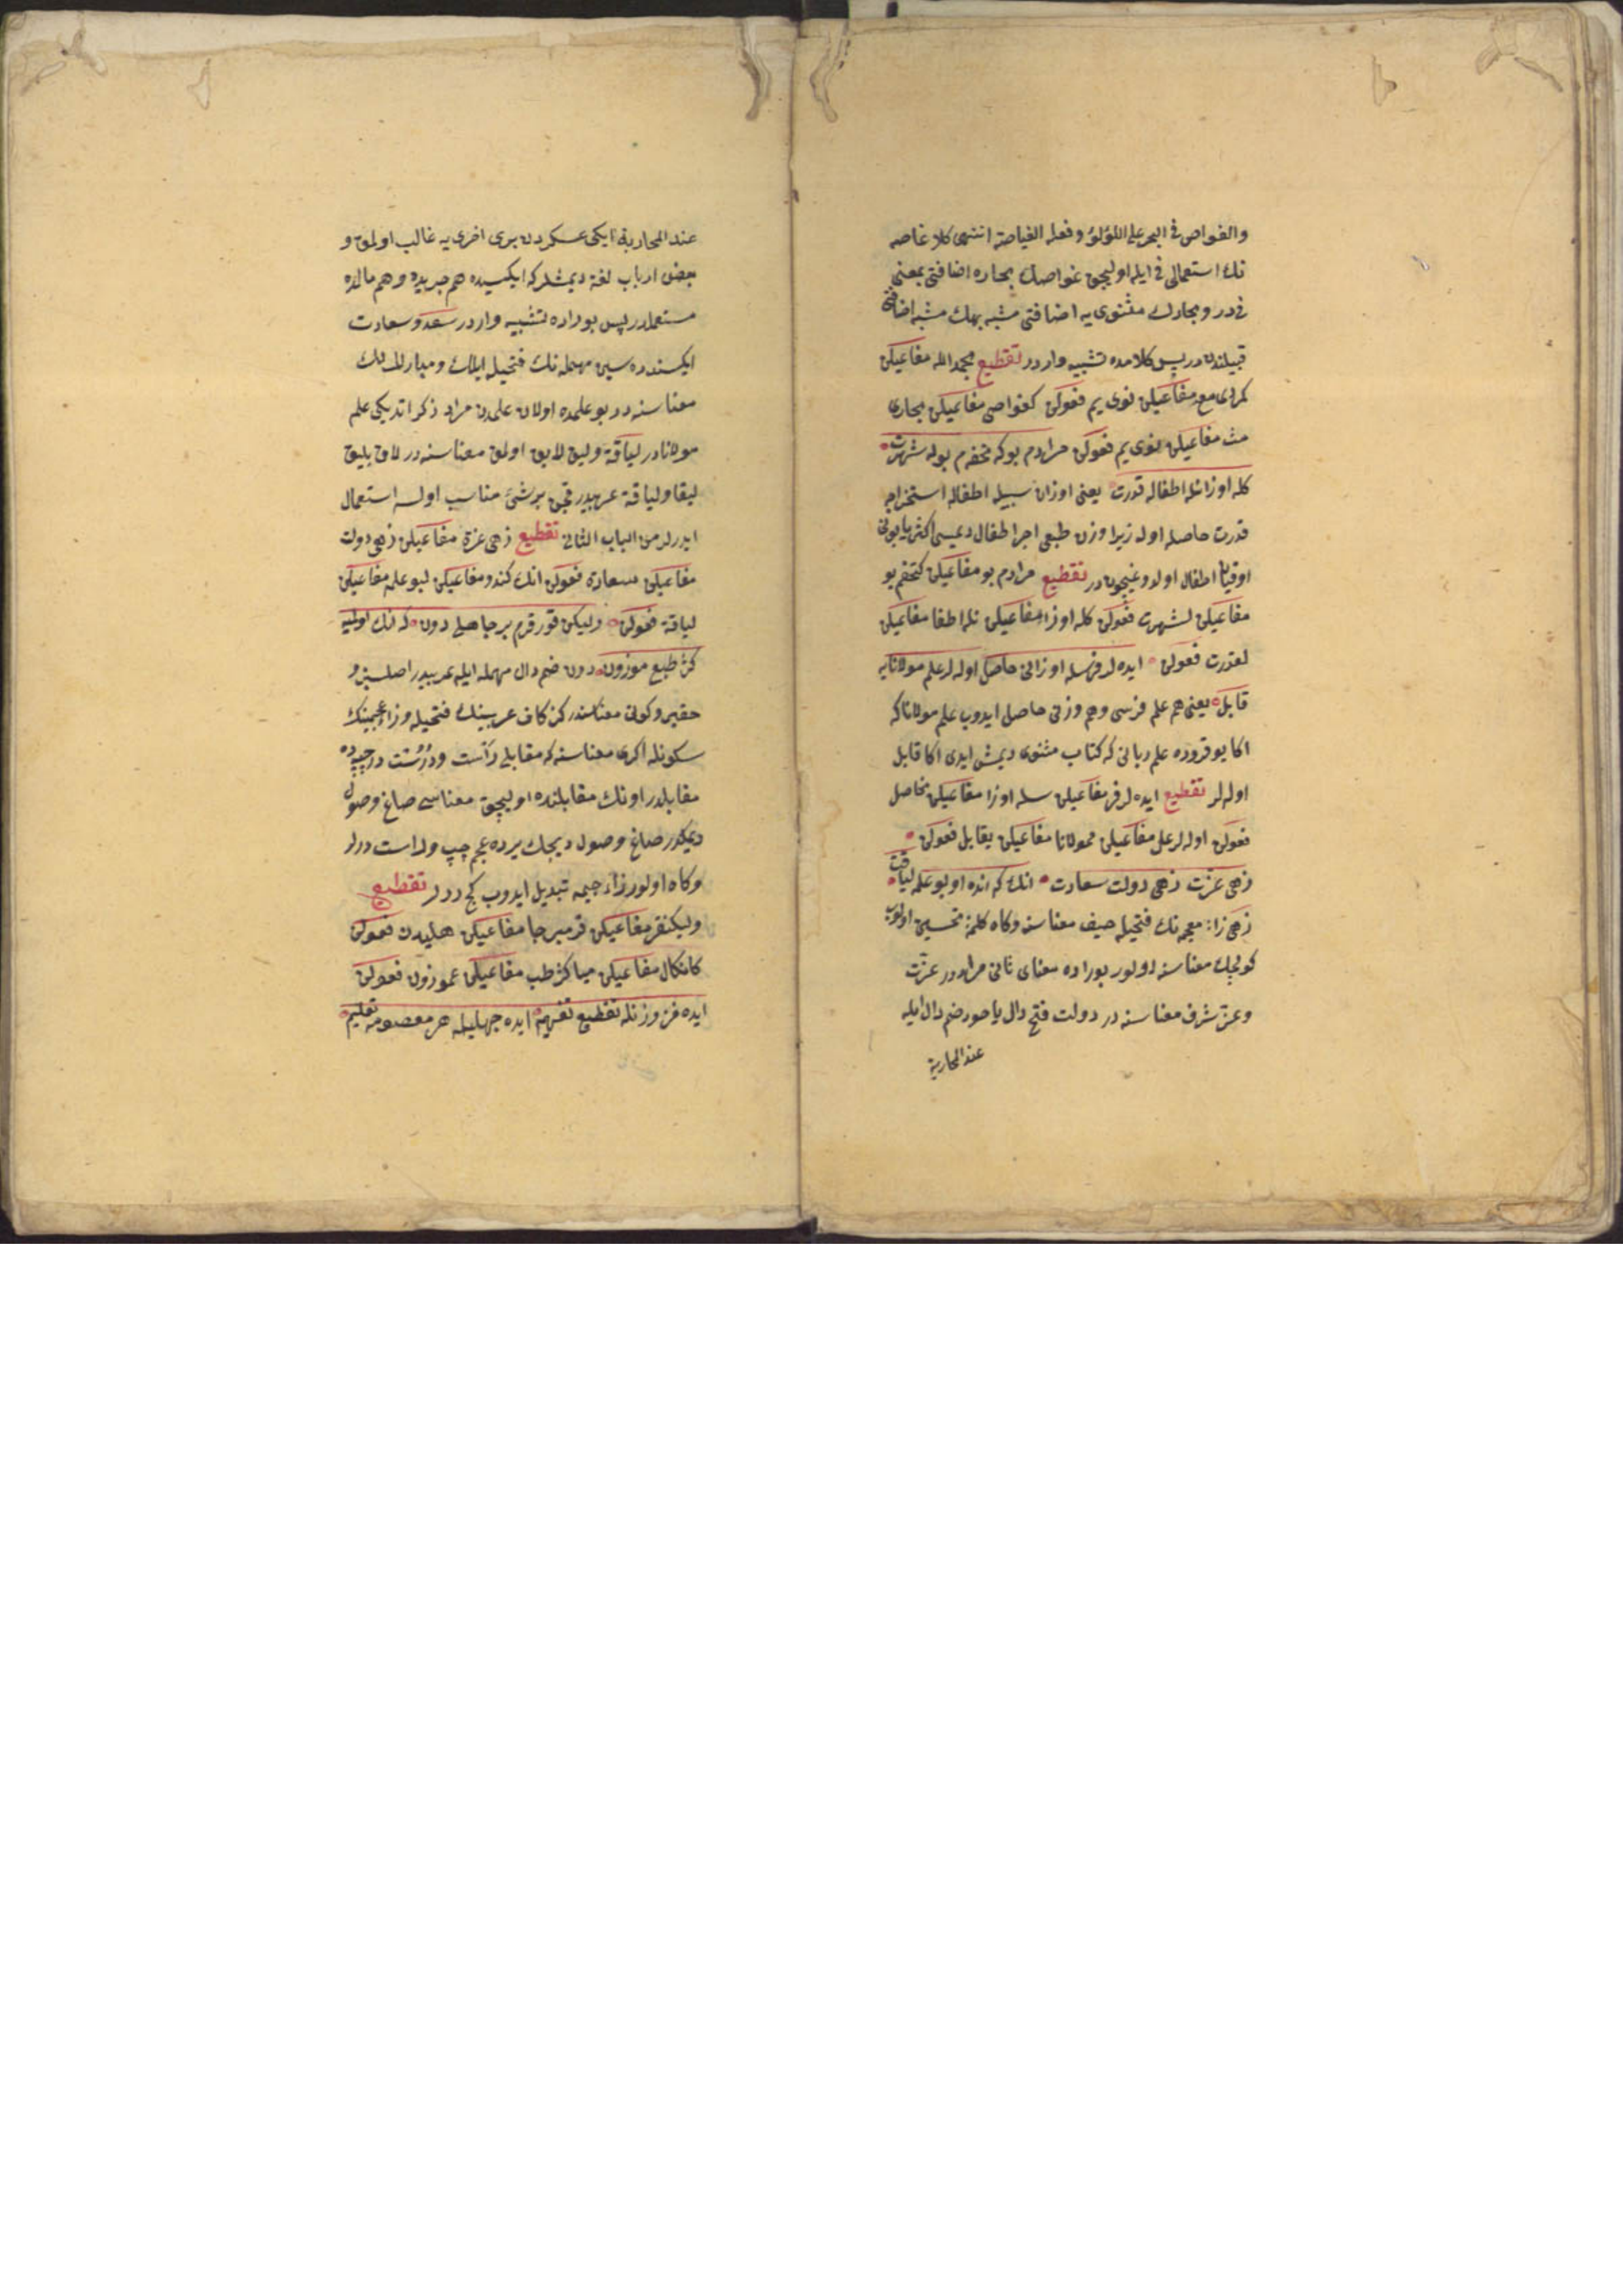 والغواص فی البحر علی اللؤلؤ وفعله الغیاصة انتهی کلا غاصه
نك استعمالی فی ایله اولیجق غواصك بحاره اضافتی بمعنی
فی در و بحارك مثنوی یه اضافتی مشبه بهك مشبه اضافتی
قبیلندن در پس کلامده تشبیه وار در تقطیع بحمد الله مفاعیلن
مفاعیلن نوی یم فعولن کغواصی مفاعیلن بحاری
مث مفاعیلن نوی یم فعولن مرادم بوکه تحفه م بوله شهرت
کله اوزانله اطفاله قدرت یعنی اوزان سبیله اطفاله استخراجه
قدرت حاصله اوله زیرا وزن طبعی اجرا اطفال دیمسی اکثریا بونی
اوقیان اطفال اولدوغیچون در تقطیع مرادم بو مفاعیلن کتحفم بو
مفاعیلن لشهرت فعولن کله اوزا مفاعیلن نله اطفا مفاعیلن
لقدرت فعولن ایده لر فرسله اوزانی حاصل اوله لر علم مولانایه
قابل یعنی هم علم فرسی وهم وزنی حاصل ایدوب علم مولانا که
اکا یوقروده علم ربانی که کتاب مثنوی دیمش ایدی اکا قابل
اوله لر تقطیع ایده لر فر مفاعیلن سله اوزا مفاعیلن حاصل
فعولن اوله لر عل مفاعیلن ممولانا مفاعیلن یقابل فعولن
زهی عزت زهی دولت سعادت انك که انده او بو علمه لیاقت
زهی زاء معجمه نك فتحیله حیف معناسنه وکاه کلمۀ تحسین اولوب
کوچك معناسنه اولور بوراده معنای ثانی مراد در عزت
وعز شرف معناسنه در دولت فتح دال یاخود ضم دال ایله
عند المحاربة
عند المحاربة ایکی عسکردن بری اخری یه غالب اولمق و
بعض ارباب لغة دیمشلر که ایکیسیده هم حربده وهم مالده
مستعملدر پس بوراده تشبیه وار در سعد و سعادت
ایکسنده سین مهمله نك فتحیله ایلك ومبارکلك
معناسنه در بو علمده اولان علمدن مراد ذکر اتدیکی علم
مولانا در لیاقة ولیق لایق اولمق معناسنه در لاق یلیق
لیقا ولیاقة عربیدر قچن بر شیء مناسب اولسه استعمال
ایدرلر من الباب الثانی تقطیع زهی عزة مفاعیلن زهی دولت
مفاعیلن سعادة فعولن انك کندو مفاعیلن لبو علمه مفاعیلن
لیاقة فعولن ولیکن قورقرم بر جاهل دون که انك اولمیه
کژ طبع موزون دون ضم دال مهمله ایله عربیدر اصلسز و
حقیر وکوتی معناسندر کژ کاف عربینك فتحیله وزاء عجمینك
سکونله اکری معناسنه که مقابلی راست ودرست در چپ ده
مقابلدر اونك مقابلنده اولیجق معناسی صاغ وصول
دیمکدر صاغ وصول دیجك یرده عجم چپ وراست درلر
وکاه اولور زاء جیمه تبدیل ایدوب کج درلر تقطیع
ولیکنقر مفاعیلن قرمبرجا مفاعیلن هلیدن فعولن
کانکال مفاعیلن میاکژطب مفاعیلن عموزون فعولن
ایده فن وزنله تقطیع تفهیم ایده جهلیله هر معصومه تعلیم